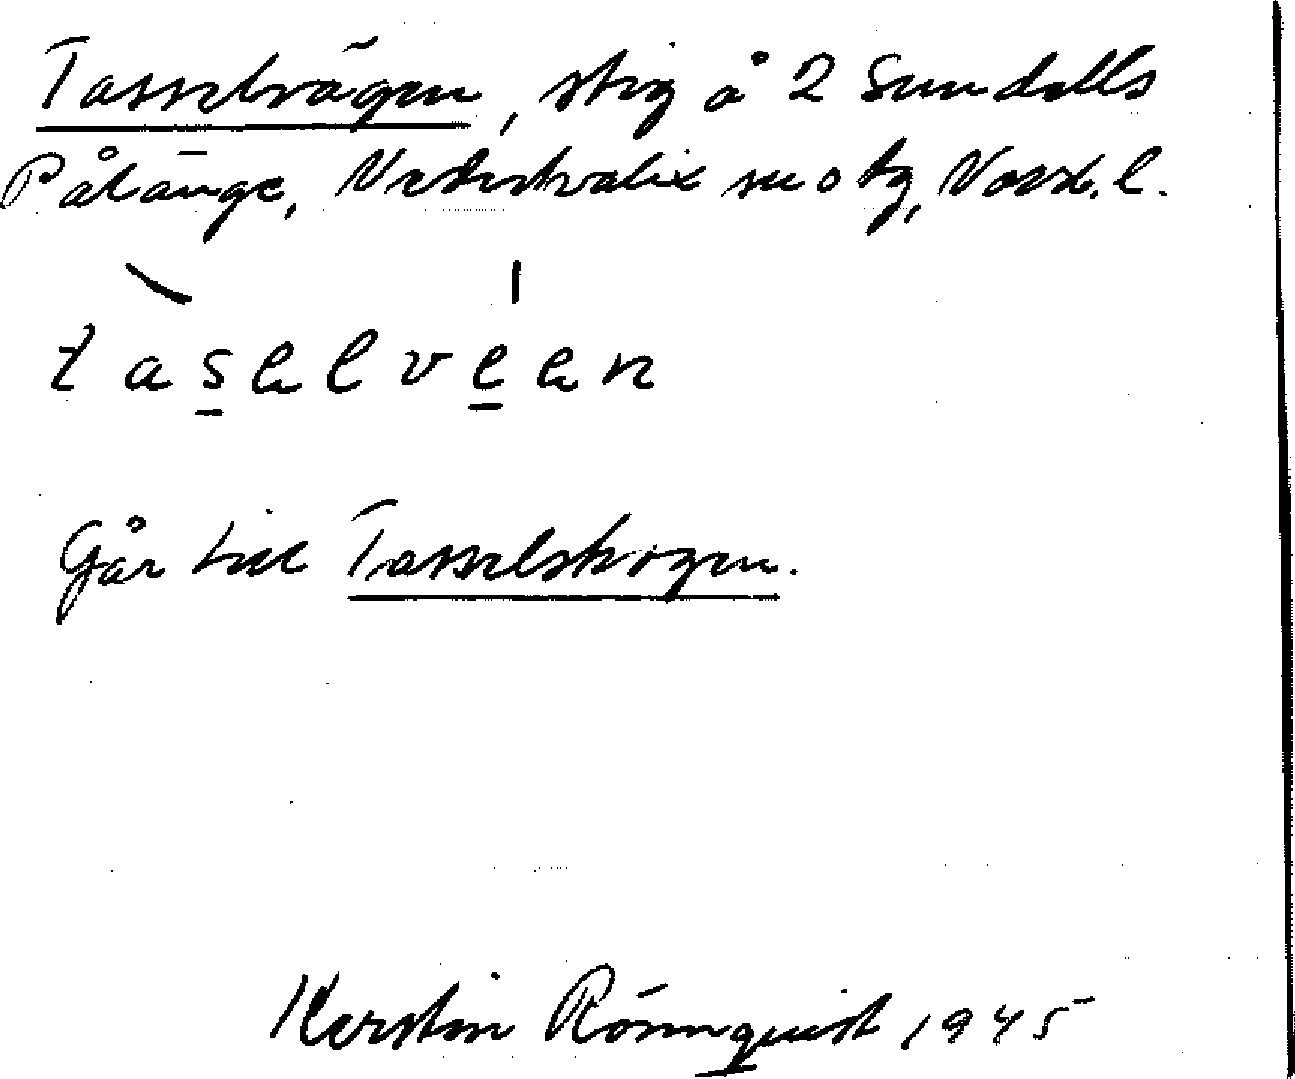 Tasselvägen, stig å 2 Sundells
Pålänge, Nederkalix sn o tg, Norrb. l.
taselveen
Går till Tasselskogen.
Kerstin Rönnquist, 1945